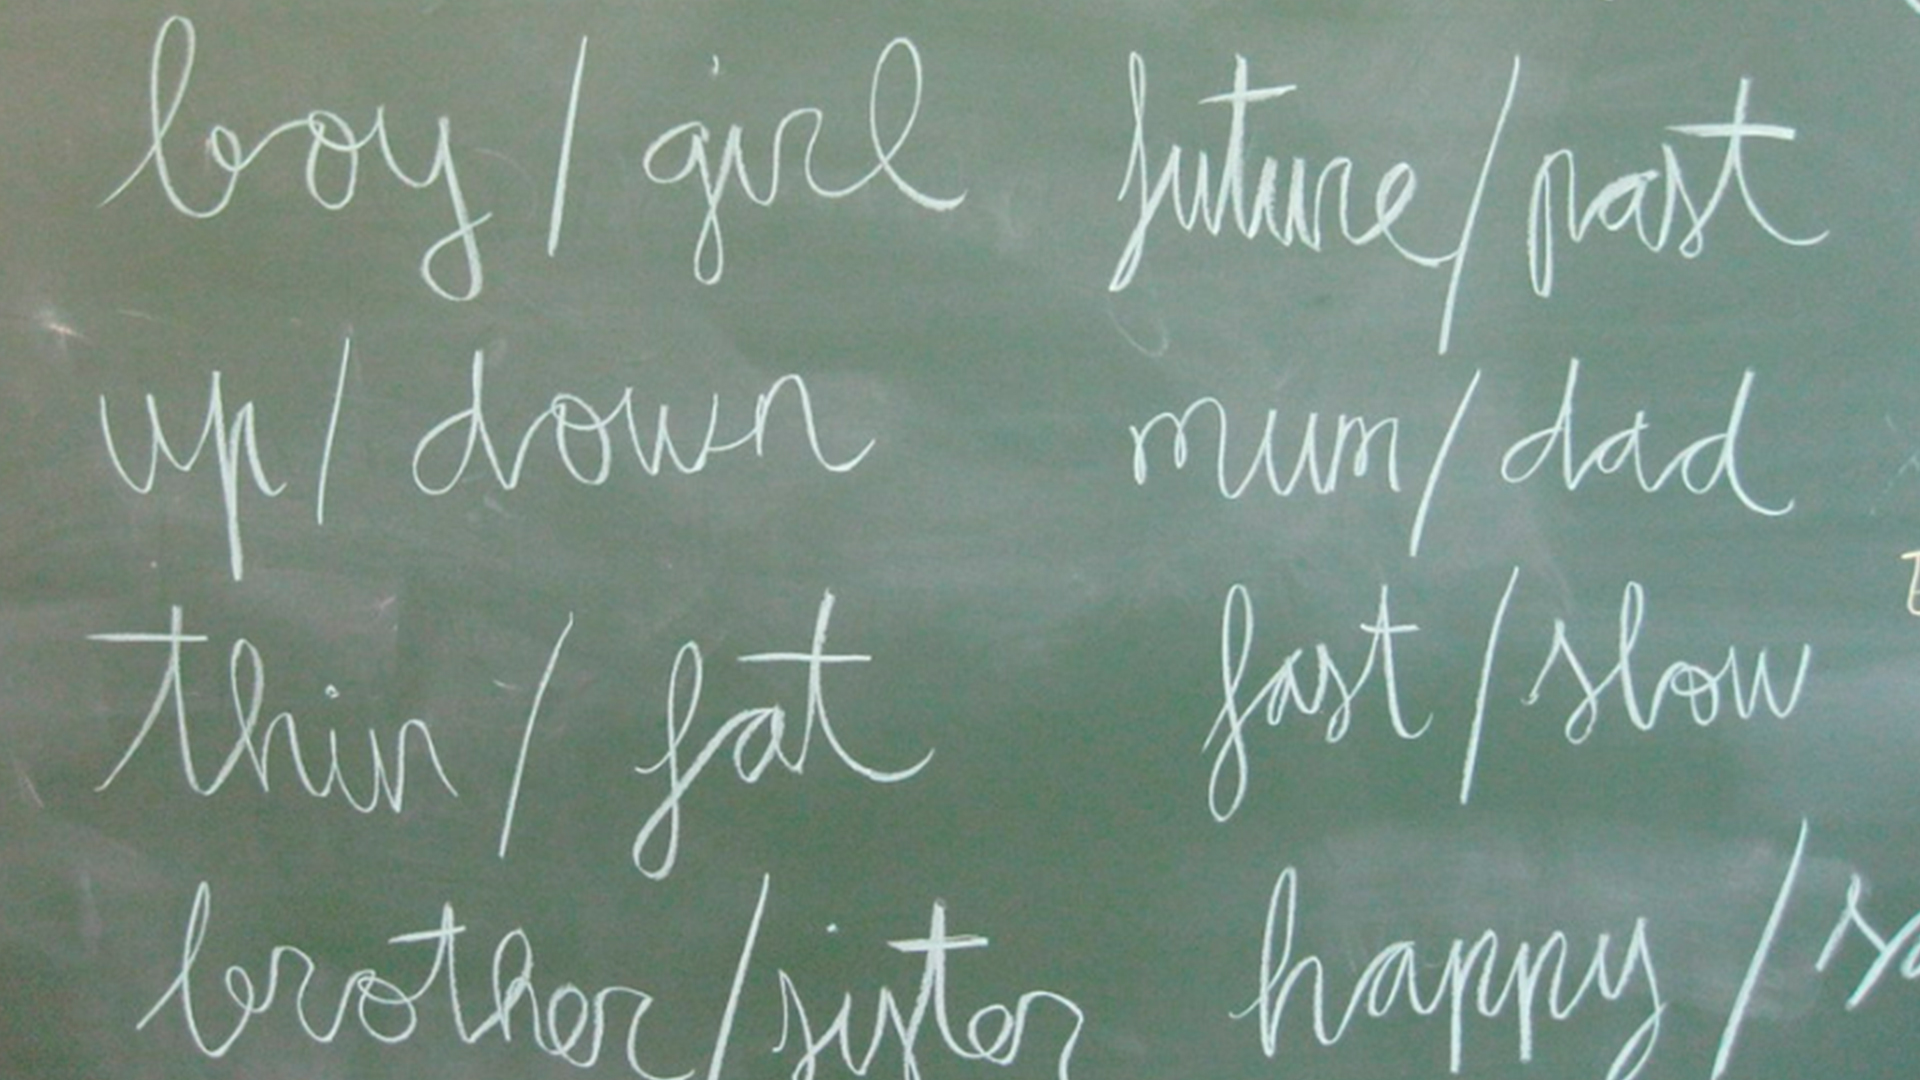 boy / girl
future / past
up / down
mum / dad
thin / fat
fast / slow
brother / sister
happy /